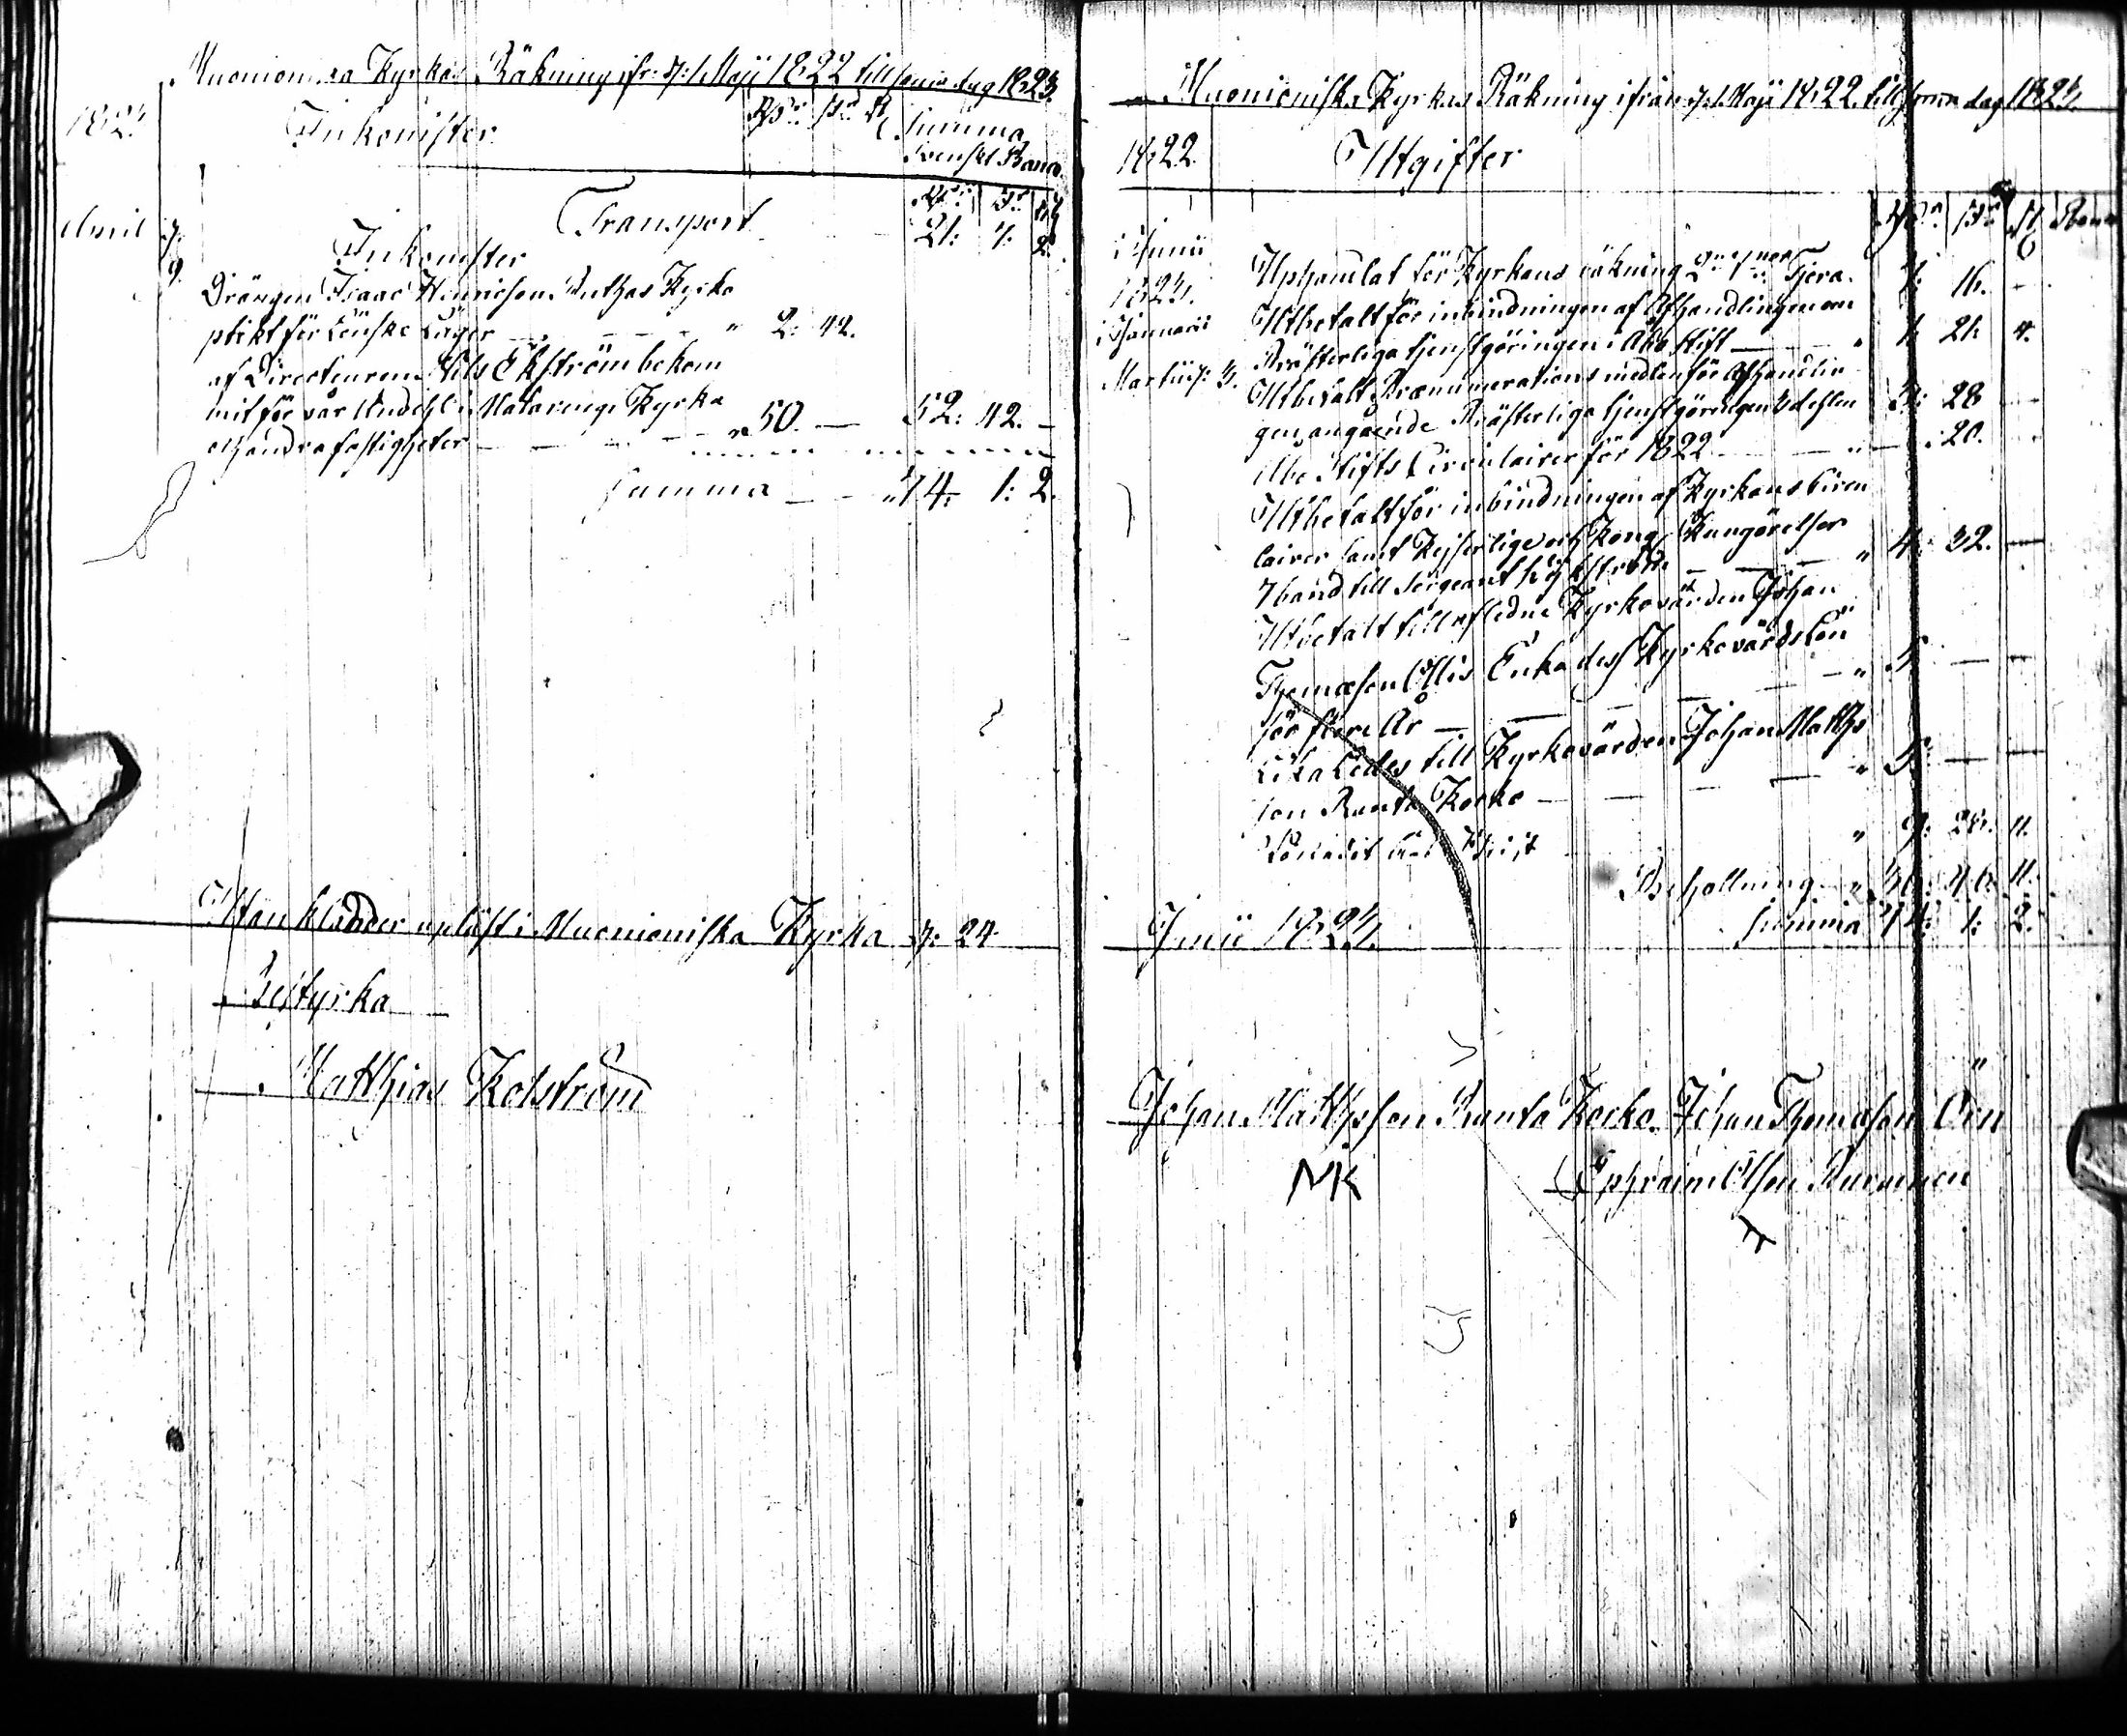 Muonioniska Kyrkas Räkning ifr: d: 1 Maji 1822 till samma dag 1823.
1823
Inkomster
Rdr sk r
Summa
Svenskt Banco
Transport
Rdr sk r
21: 7: 2.
April d: 9.
Inkomster
Drängen Isaac Henricson Ruthas Kyrko
plikt för Lönske Läger — — — " 2: 42.
af Directeuren Nils Ekström bekom
mit för vår Andehl i Matarengi Kyrka
och andra fastigheter — — — " 50. — 52: 42. —
Summa — — " 74. 1: 2.
Utan klander upläst i Muonioniska Kyrka d: 24
Bestyrka
Matthias Kolström
Muonioniska Kyrkas Räkning ifrån d: 1 Maji 1822. till samma dag 1823.
1822
Utgifter
Rdr sk r Banco
i Junii
Uphandlat för Kyrkans räkning Tjera. 1: 16. —
1823.
i Januarii
Utbetalt för inbindningen af Afhandlingen om
Prästerliga tjenstgöringen i Åbo Stift — — " 1: 21: 4.
Martii d: 3.
Utbetalt Prænumerations medlen för Afhandlin
gen angående Prästerliga tjenstgöringen 3: 28 —
Åbo Stifts Circulairer för 1822 — — " —: 20. —
Utbetalt för inbindningen af Kyrkans Circu
lairer samt Kejserlige och Kongl Kungörelser
7 band till Sergeant — — " 4: 32. —
Utbetalt till afledne Kyrkovärden Johan
Thomæson Ollis Enka dess Kyrkovärds Lön
för flere År — — — " 5 — —
Likaledes till Kyrkovärden Johan Matths
son Ranta Kocko — — — " 5 — —
" 9: 28. 11.
Behollning — " 46. 11.
Summa 74: 1: 2.
Junii 1823.
Johan Mattsson Ranta Kocko. Johan Thomæson Öin
NK
Ephraim Olson